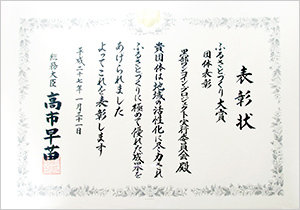 表彰状
ふるさとづくり大賞
団体表彰
実行委員会殿
貴団体は地域の活性化に尽力され
ふるさとづくりに極めて優れた成果を
あげられました
よってこれを表彰します
平成二十七年一月三十一日
総務大臣
高市早苗